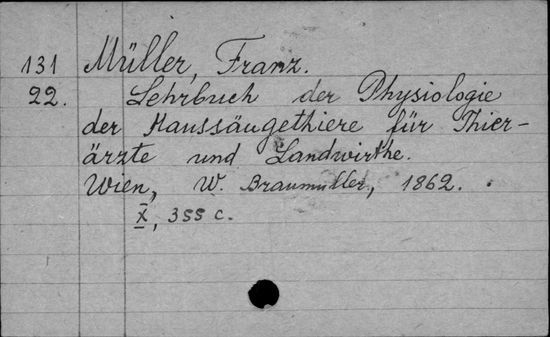 131 Müller, Franz.
22. Lehrbuch der Physiologie
der Haussäugethiere für Thier-
ärzte und Landwirthe.
Wien, W. Braumüller, 1862.
X, 355 c.